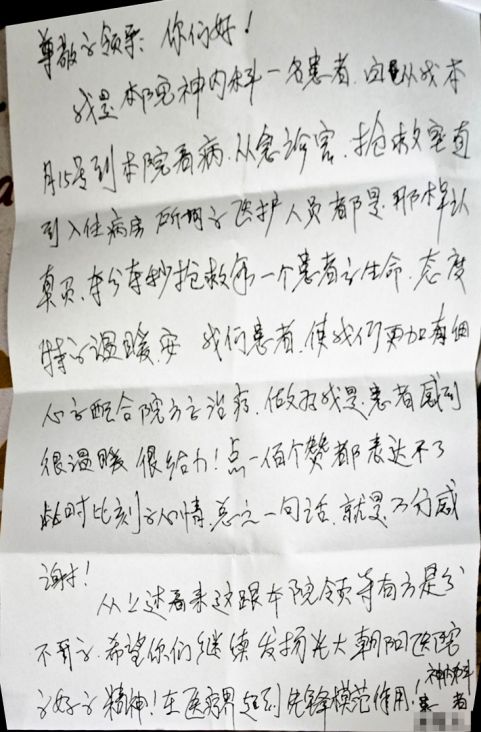 尊敬的领导：你们好！
我是本院神内科一名患者，自从我本
月15号到本院看病，从急诊室、抢救室直
到入住病房所有的医护人员都是那样认
真负，争分夺秒抢救每一个患者的生命，态度
特的温暖 我们患者，使我们更加有信
心的配合院方的治疗，做为我是患者感到
很温暖很给力！点一佰个赞都表达不了
此时此刻的心情，总之一句话，就是万分感
谢！
从上述看来这跟本院领导有方是分
不开的，希望你们继续发扬光大朝阳医院
的好的精神！在医疗界起到先锋模范作用！
神内科
患者